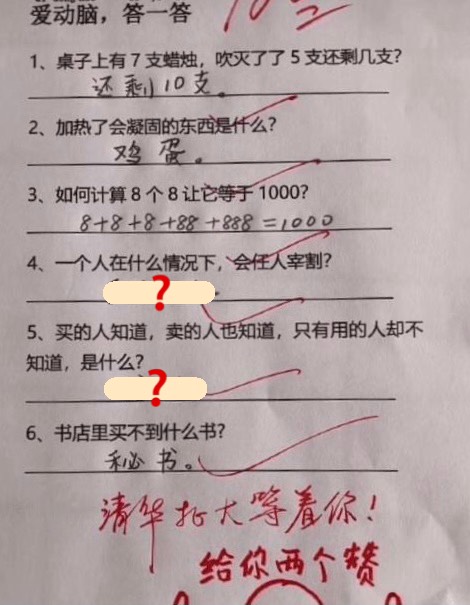 爱动脑，答一答
1、桌子上有7支蜡烛，吹灭了了5支还剩几支？
还剩10支。
2、加热了会凝固的东西是什么？
鸡蛋。
3、如何计算8个8让它等于1000？
8+8+8+88+888=1000
4、一个人在什么情况下，会任人宰割？
？
5、买的人知道，卖的人也知道，只有用的人却不
知道，是什么？
？
6、书店里买不到什么书？
秘书。
清华北大等着你！
给你两个赞